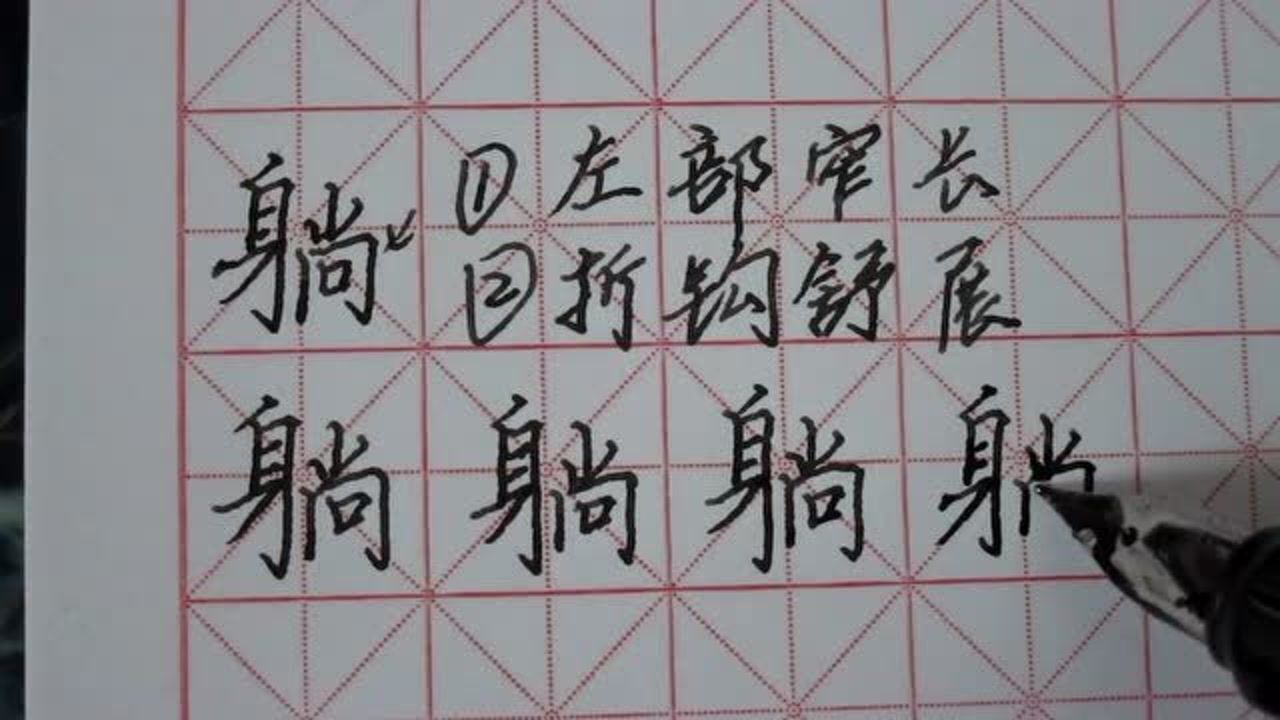 躺 ①左部窄长
②折钩舒展
躺 躺 躺 躺